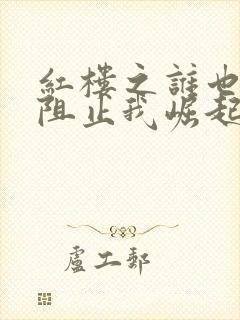 紅樓之誰也
阻止我崛起
盧工郵